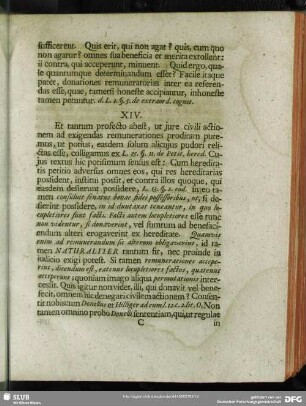 sufficerent. Quis erit, qui non agat? quis, cum quo
non agatur? omnes sua beneficia et merita extollent:
ii contra, qui acceperunt, minuent. Quid ergo, quale
quantumque determinandum esset? Facile itaque
patet, donationes remuneratorias inter ea referendas
esse, quae, tametsi honeste accipiantur, inhoneste
tamen petuntur. d. L. 1. §. 5. de extraord. cognit.
XIV.
Et tantum profecto abest, ut jure civili actionem
ad exigendas remunerationes proditam putemus,
ut potius, easdem solum alicujus pudori relictas
esse, colligamus ex L. 25. §. 11. de Petit. hered. Cujus
textus hic potissimum sensus est: Cum hereditatis
petitio adversus omnes eos, qui res hereditarias
possident, institui possit, et contra illos quoque, qui
easdem desierunt possidere,
tamen consuluit senatus bonae fidei possessoribus, ut, si
desierint possidere, in id duntaxat teneantur, in quo locupletiores
sunt facti. Facti autem locupletiores esse tunc
non videntur, si donaverint, vel sumtus ad benefaciendum
alteri erogaverint ex hereditate. Quamvis
enim ad remunerandum sibi alterum obligaverint, id tamen
NATURALITER tantum fit, nec proinde in
judicio exigi potest. Si tamen remunerationes acceperint,
dicendum est, eatenus locupletiores factos, quatenus
acceperint; quoniam imago aliqua permutationis intercessit.
Quis igitur non videt, illi, qui donavit vel benefecit,
omnem hic denegari civilem actionem? Consentit
nobiscum Donellus et Hilliger ad eum
Non
tamen omnino probo Donelli sententiam, qui, ut regulae
C in
SLUB